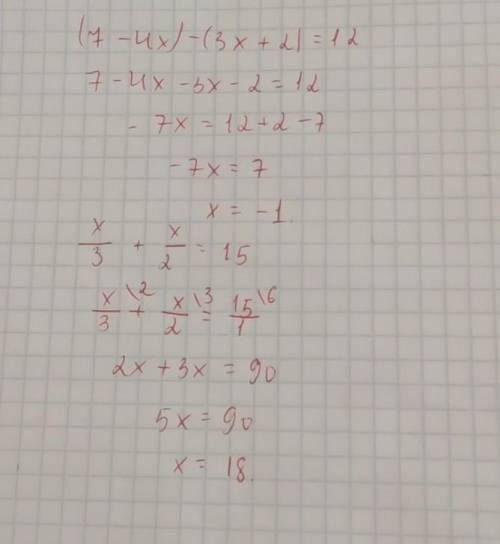 (7 - 4x) - (3x + 2) = 12
7 - 4x - 3x - 2 = 12
- 7x = 12 + 2 - 7
- 7x = 7
x = -1.
x/3 + x/2 = 15
x/3 \2 + x/2 \3 = 15/1 \6
2x + 3x = 90
5x = 90
x = 18.